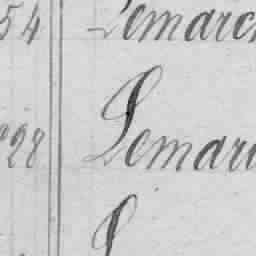 54 Lemarc
28 Lemar